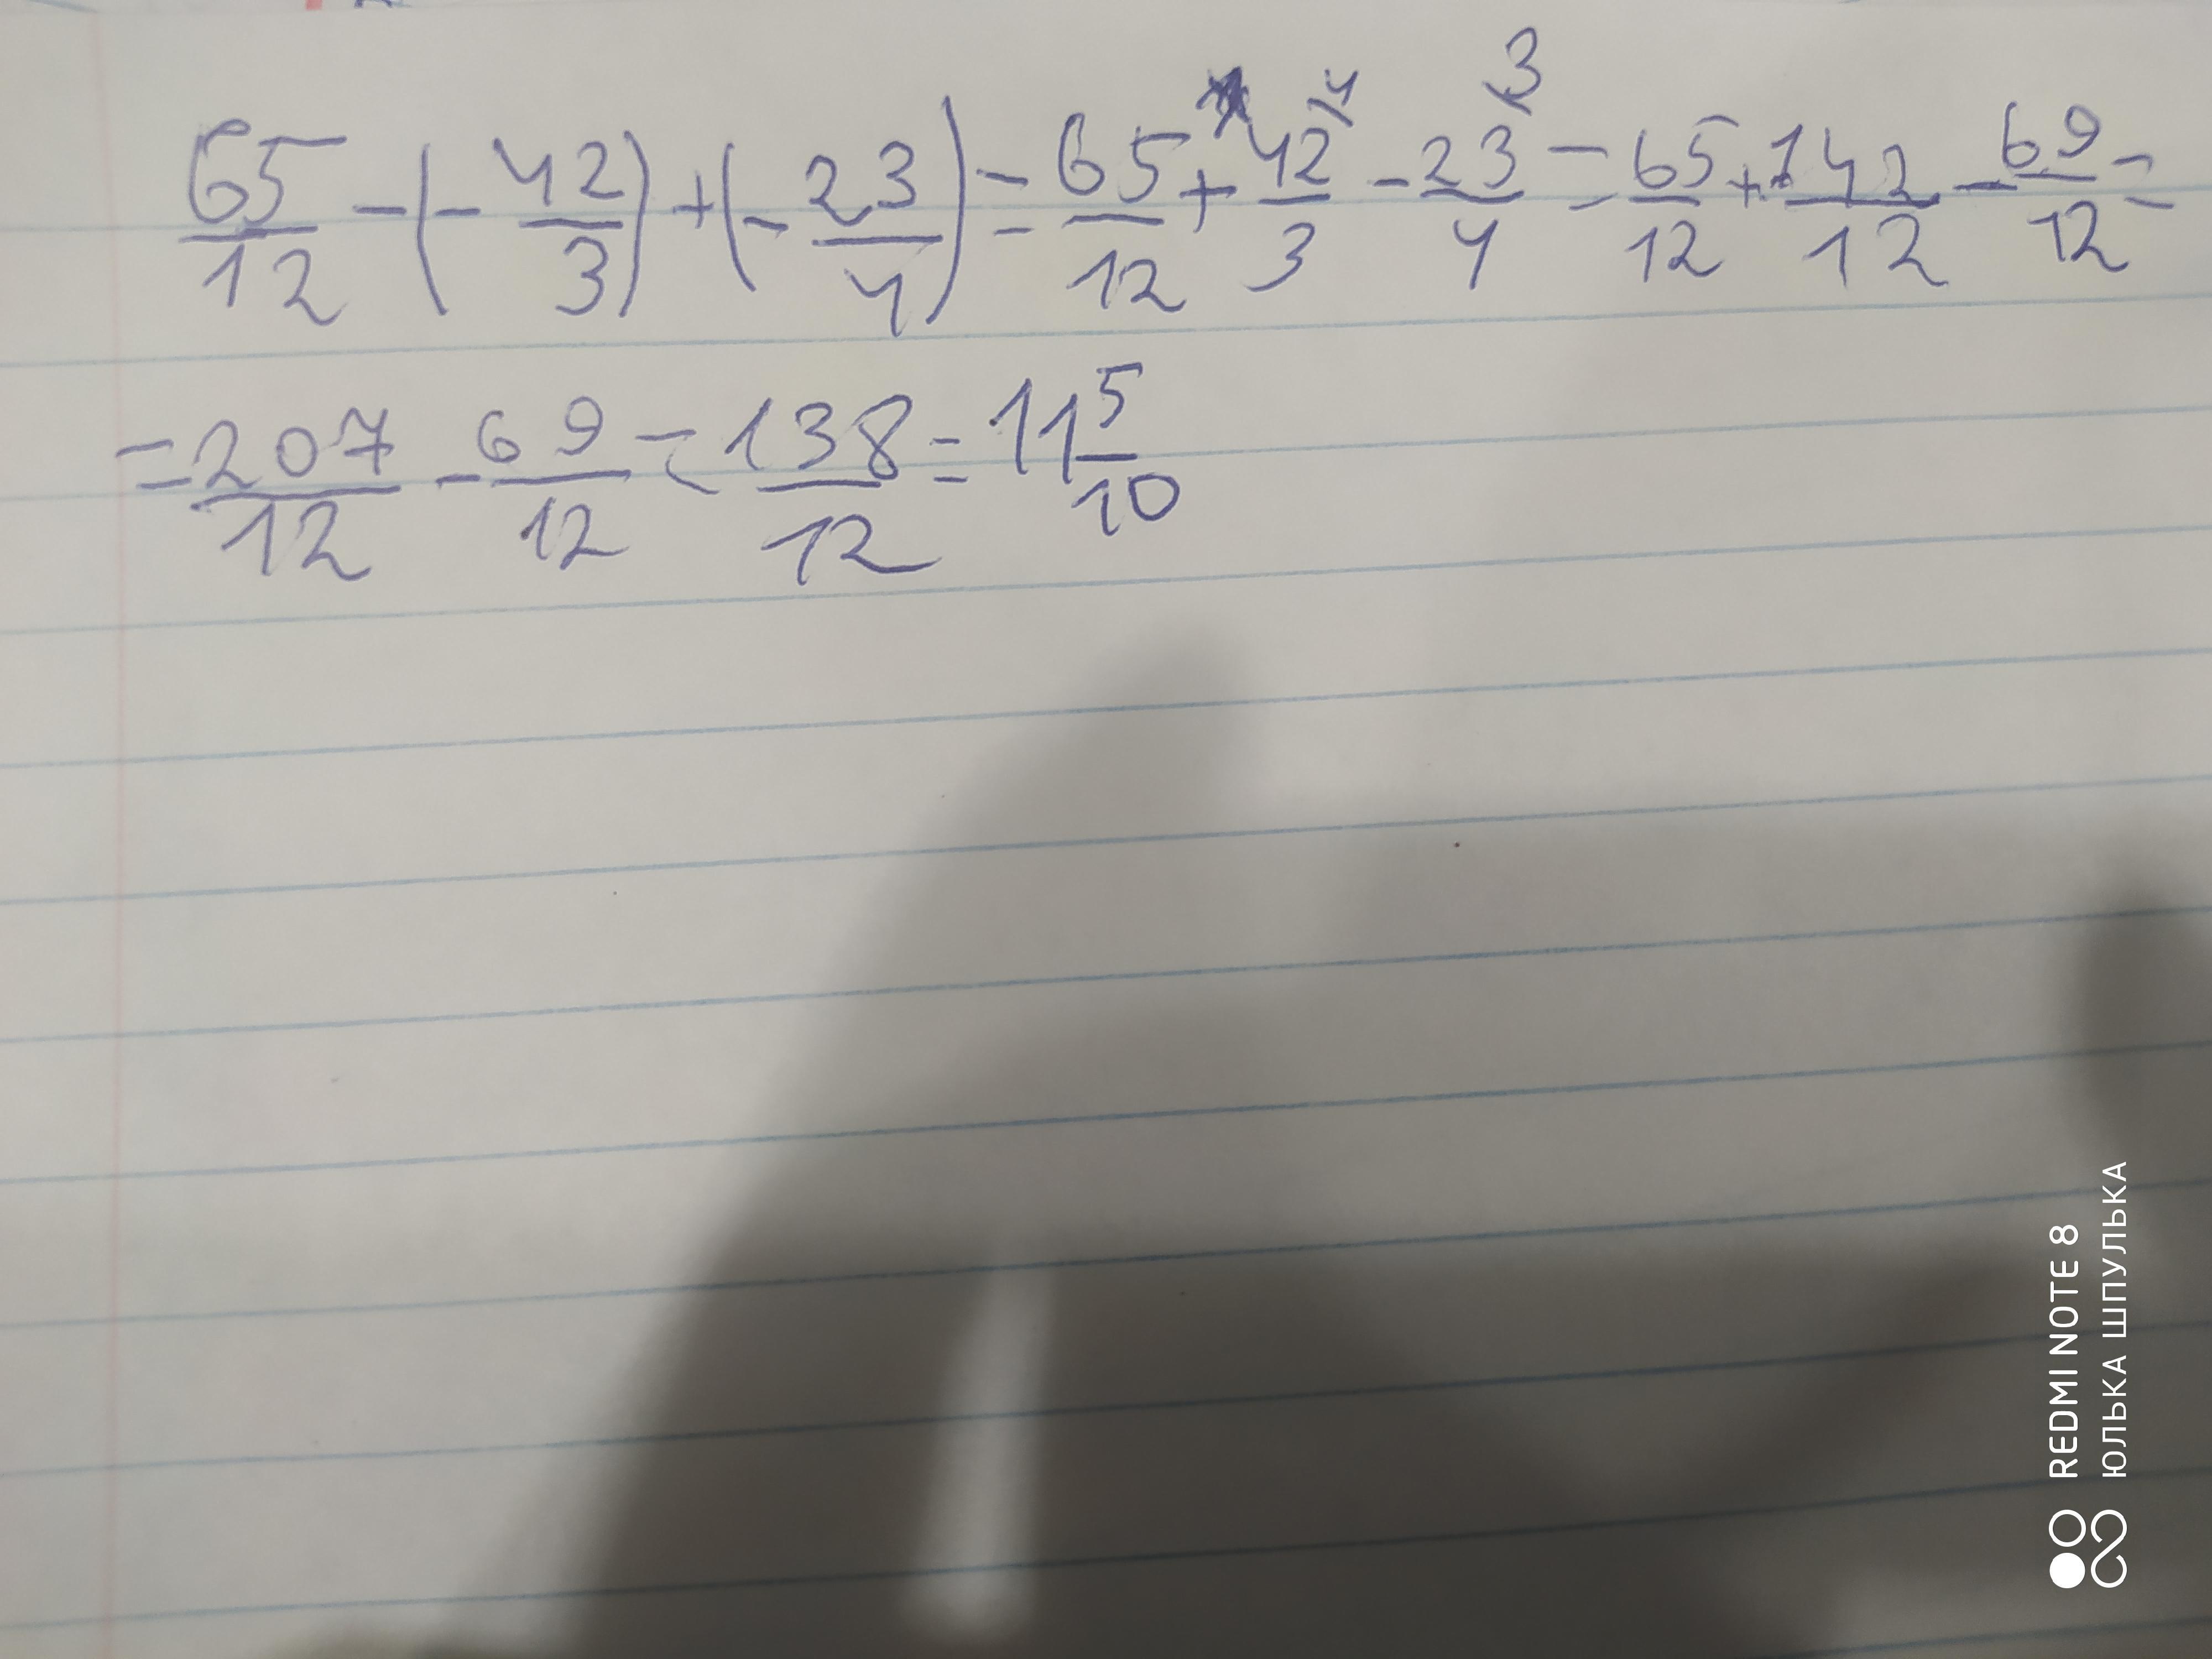 65/12 - (- 42/3) + (- 23/4) = 65/12 + 42/3 ⁴ - 23/4 ³ = 65/12 + 142/12 - 69/12 =
= 207/12 - 69/12 = 138/12 = 11 5/10
REDMI NOTE 8
ЮЛЬКА ШПУЛЬКА